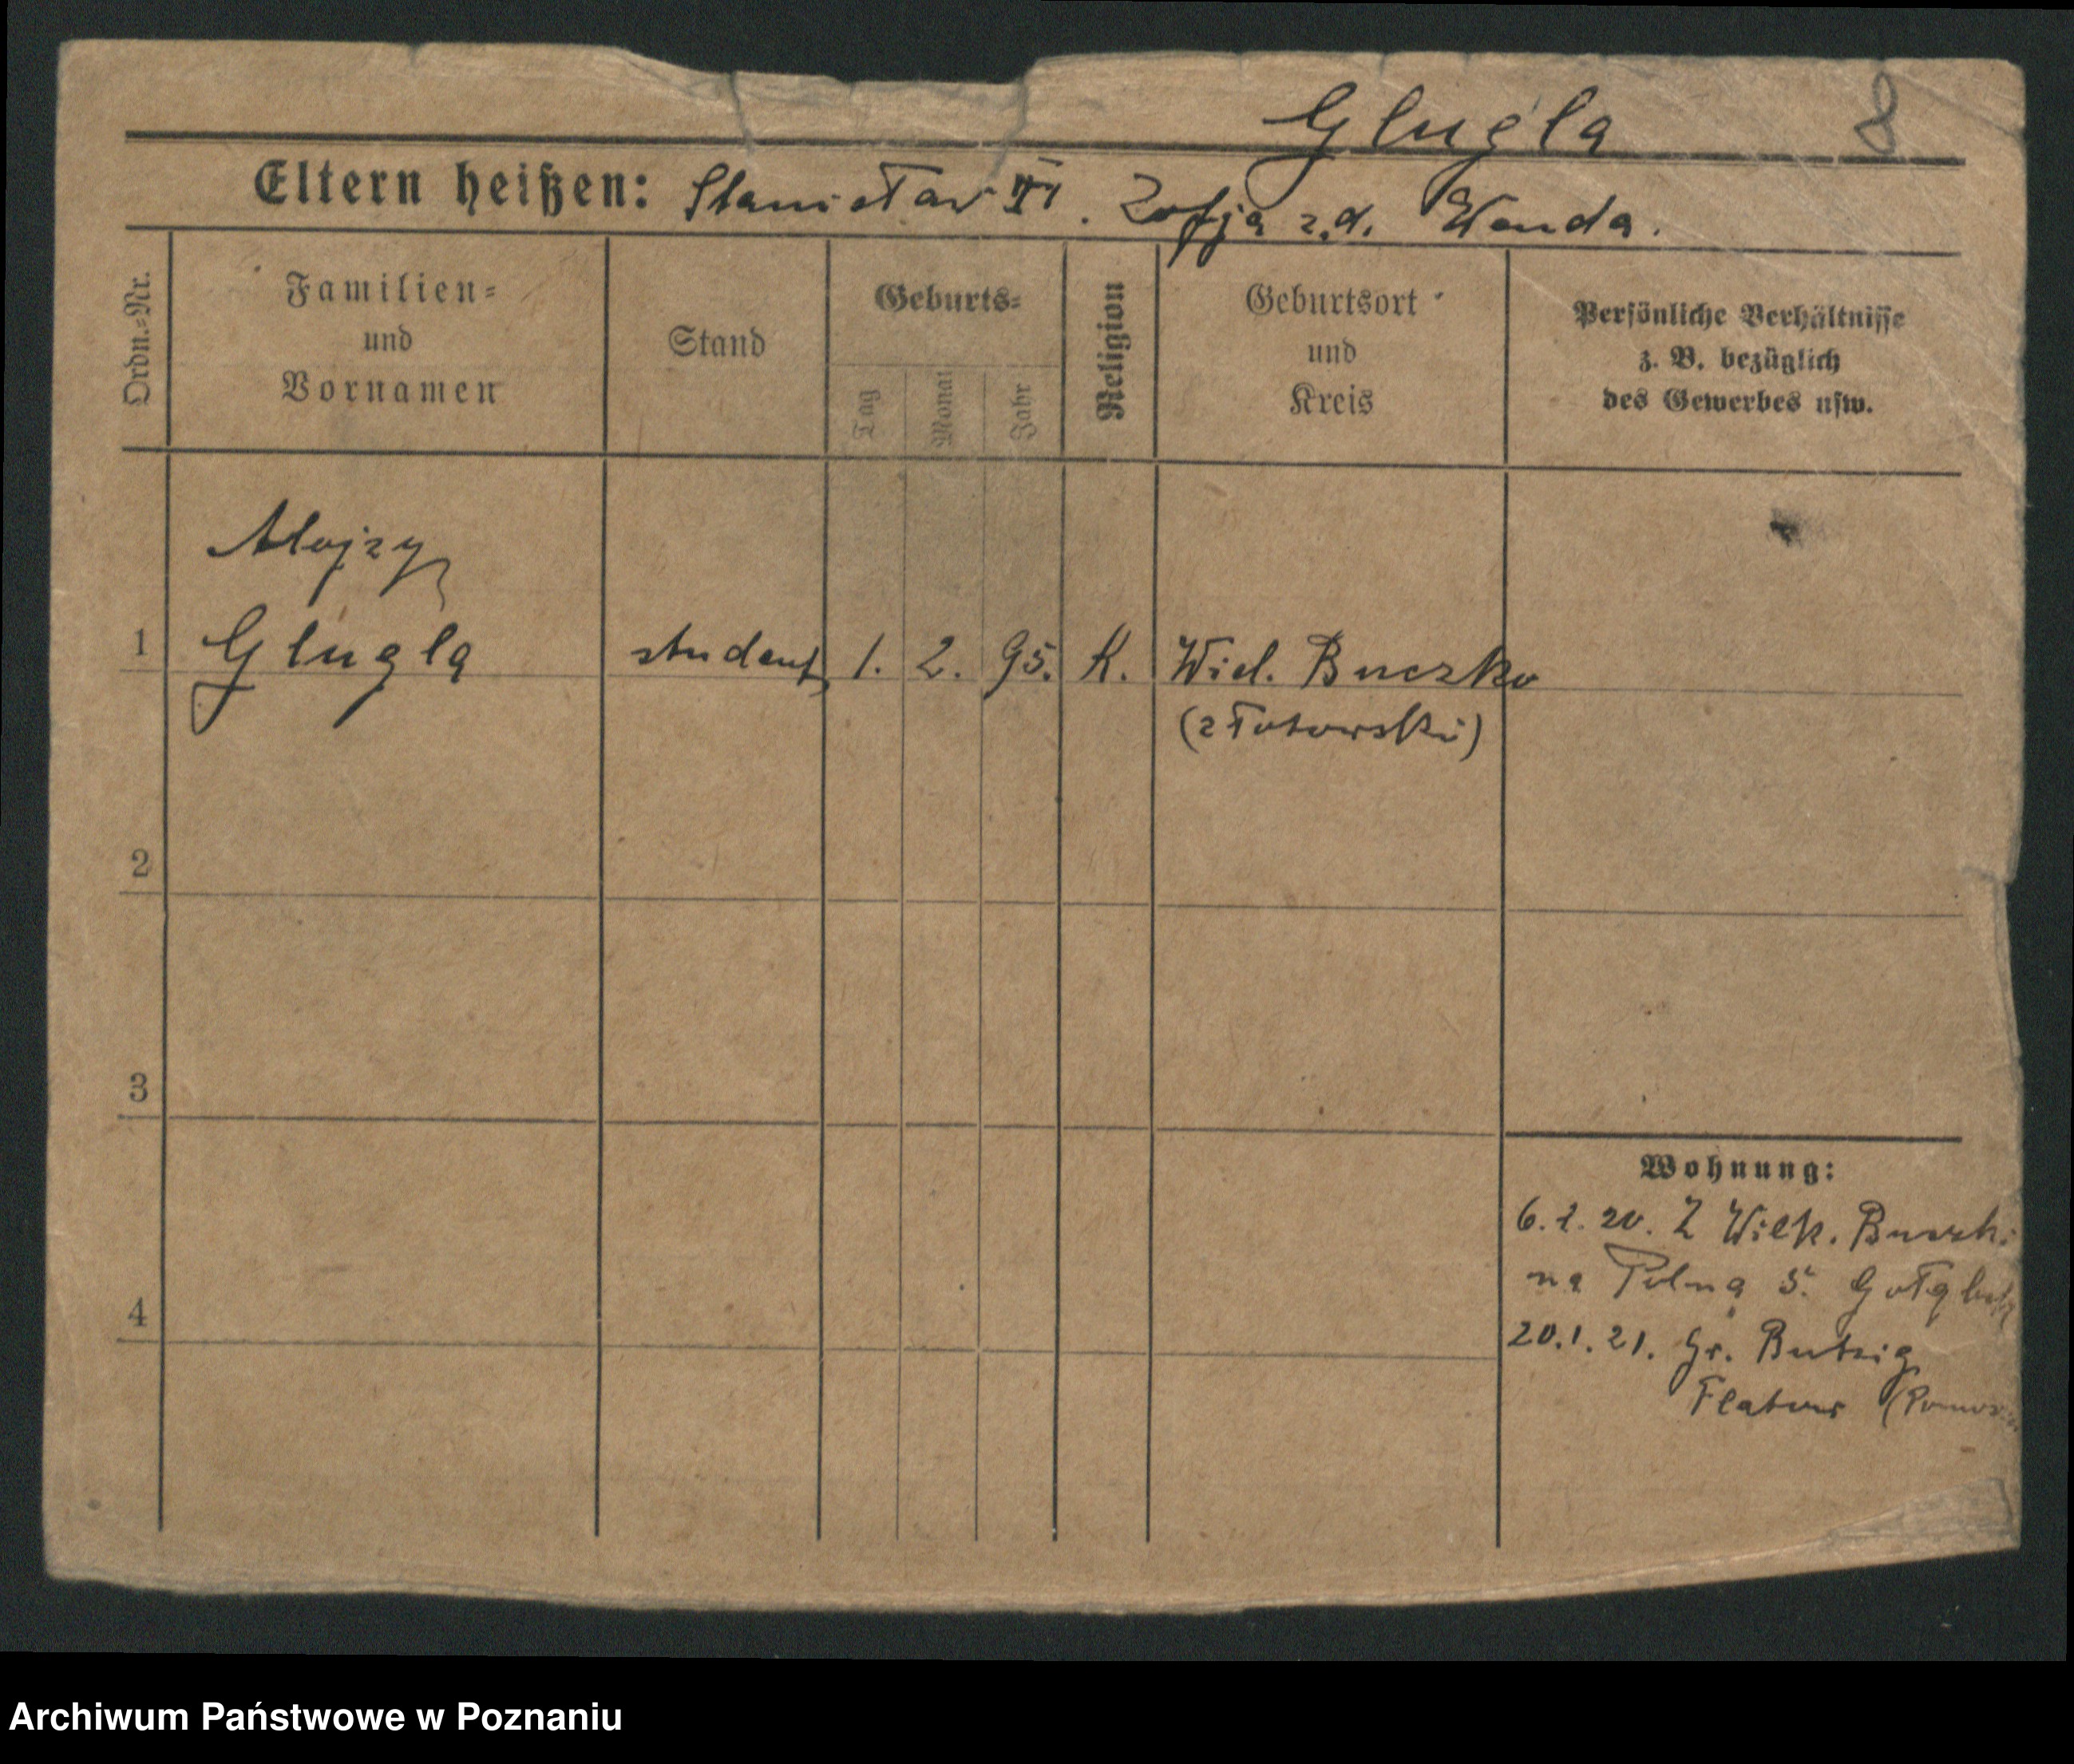 Glugla 8
Eltern heißen: Stanisław II. Zofja z.d. Wenda.
Ordn.=Nr.
Familien=
und
Vornamen
Stand
Geburts=
Tag
Monat
Jahr
Religion
Geburtsort
und
Kreis
Persönliche Verhältnisse
z. B. bezüglich
des Gewerbes usw.
Alojzy
1 Glugla student 1. 2. 95. K. Wiel. Buczko
(złotowski)
2
3
4
Wohnung:
6. 2. 20. Z Wielk.
na Polną 5.
20.1.21. Gr. Butzig
Flatow
Archiwum Państwowe w Poznaniu